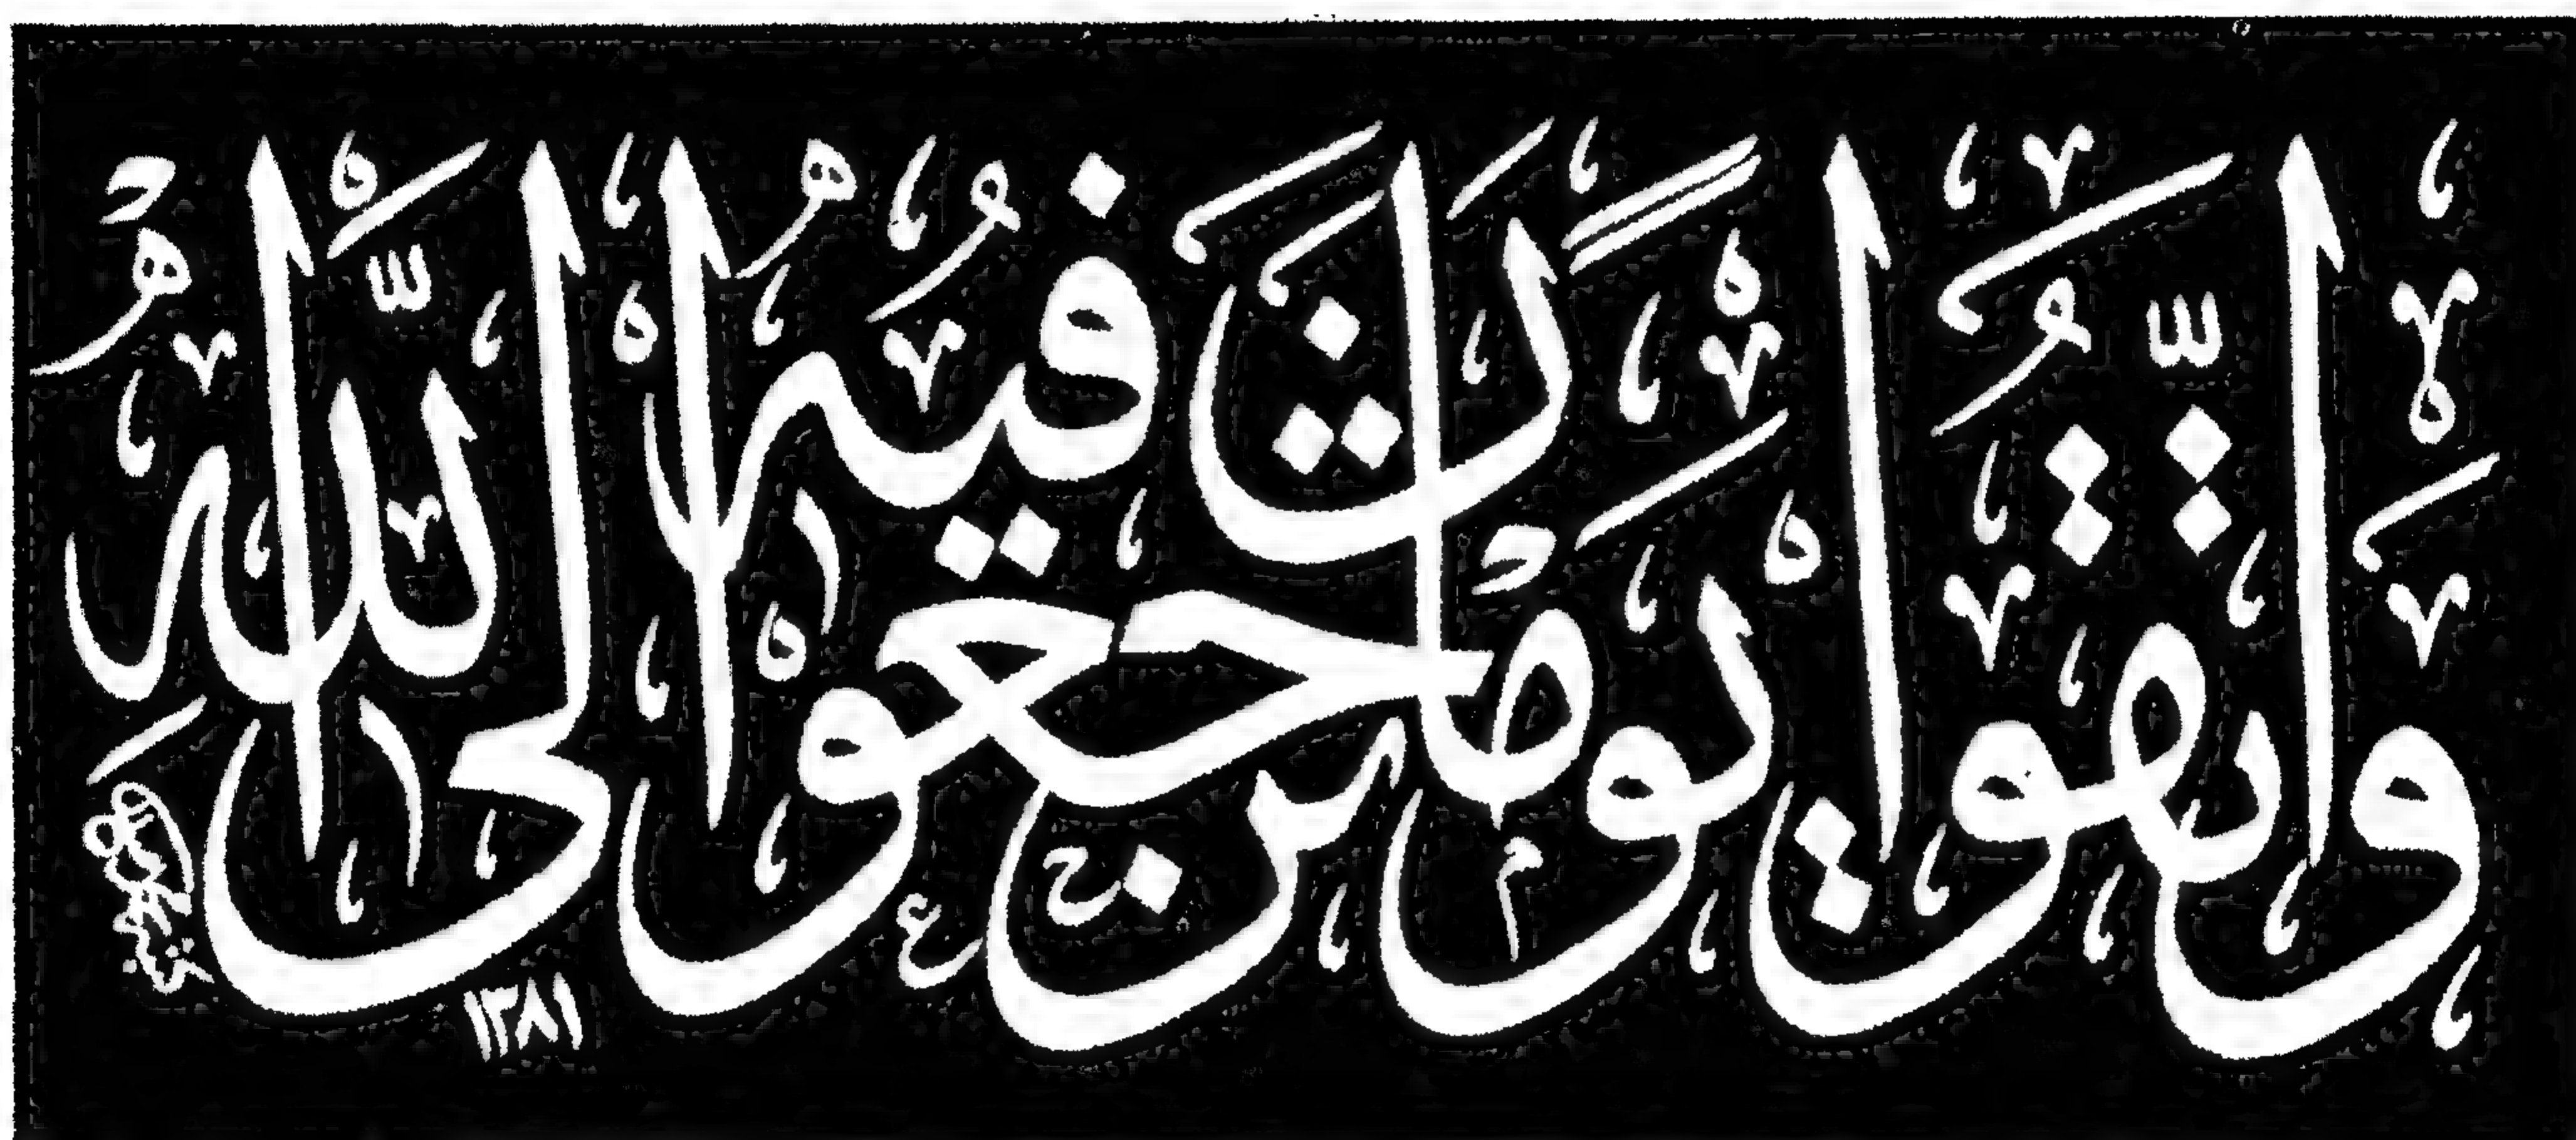 وَاتَّقُوا يَوْمًا تُرْجَعُونَ فِيهِ إِلَى اللَّهِ
١٢٨١